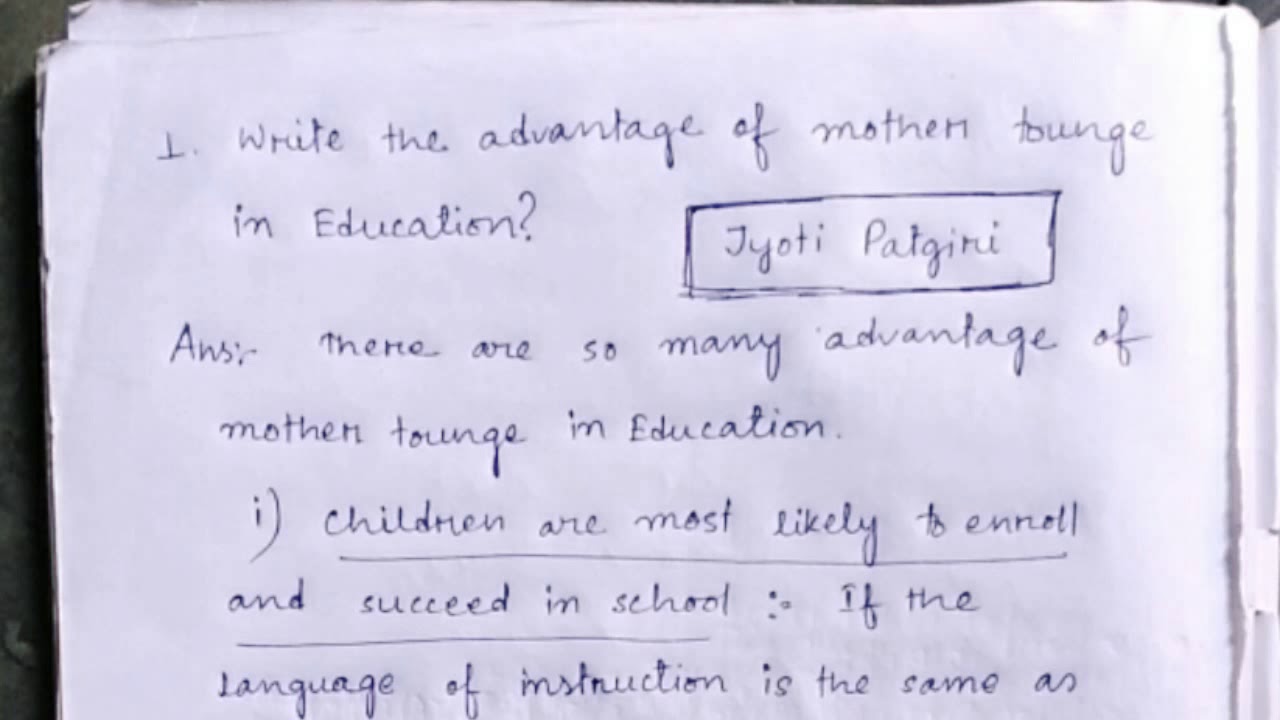 1. Write the advantage of mother tounge
in Education?
Jyoti Patgiri
Ans:- There are so many advantage of
mother tounge in Education.
i) children are most likely to enroll
and succeed in school :- If the
language of instruction is the same as